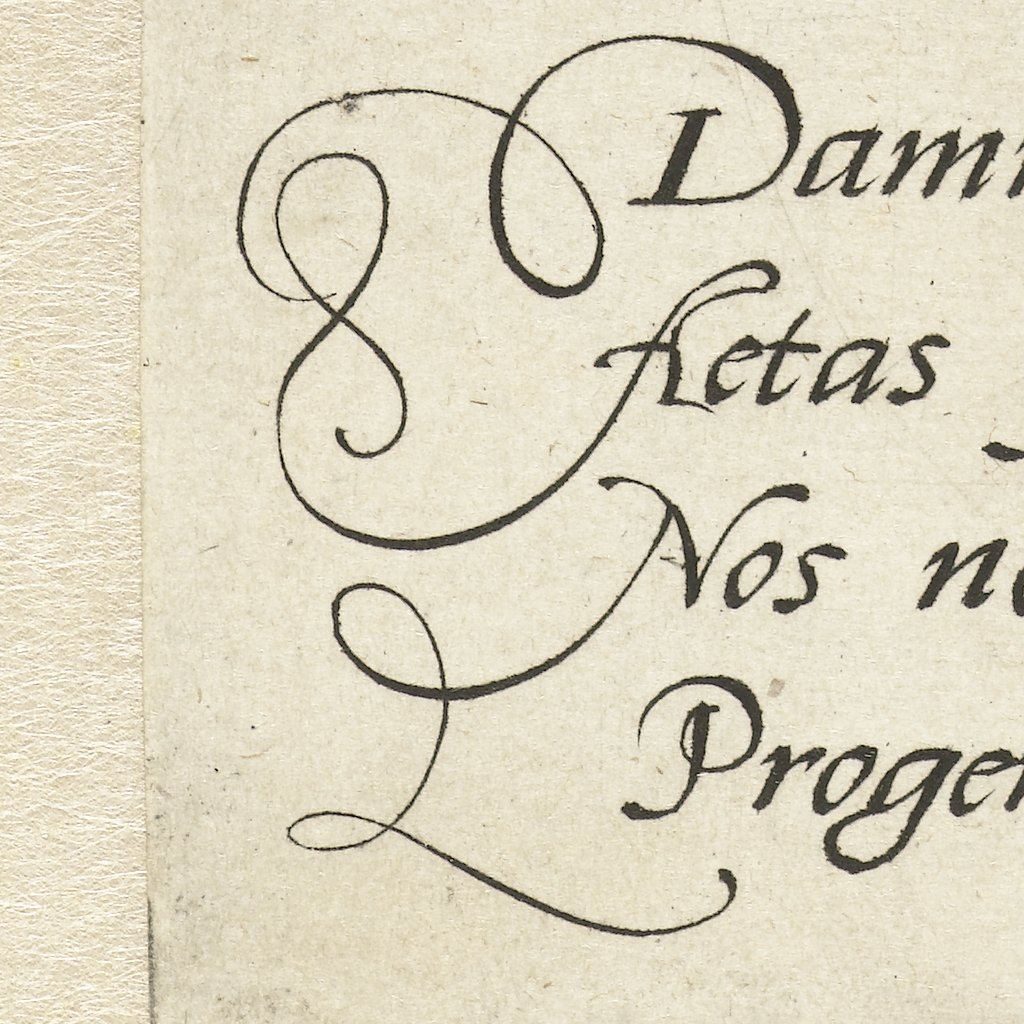 Damn
Aetas
Nos no
Progen